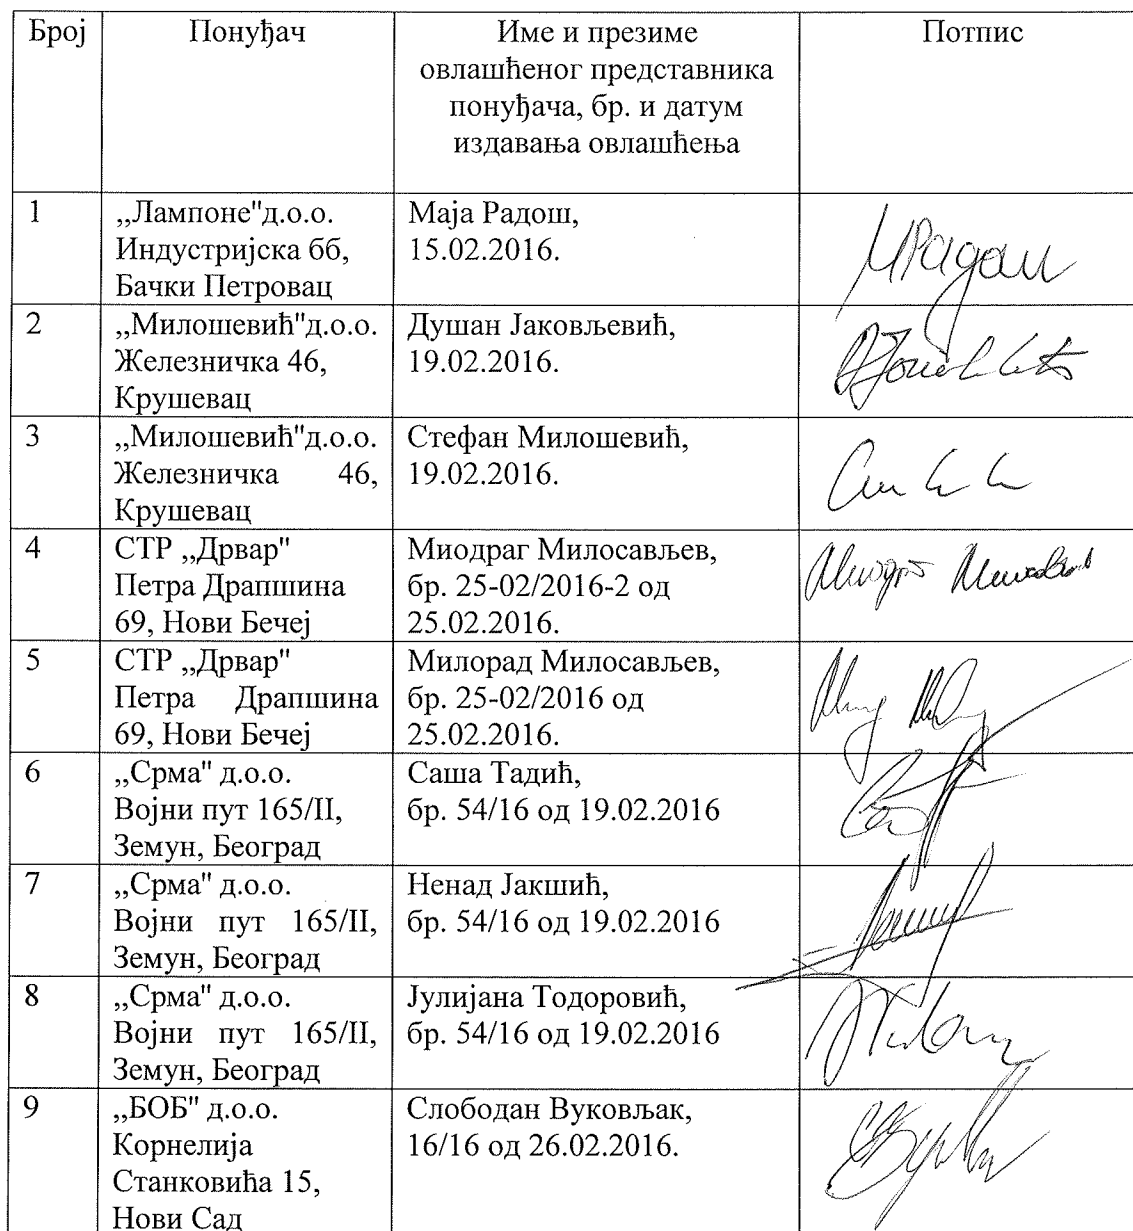 Број
Понуђач
Име и презиме
овлашћеног представника
понуђача, бр. и датум
издавања овлашћења
Потпис
1
,,Лампоне"д.о.о.
Индустријска бб,
Бачки Петровац
Маја Радош,
15.02.2016.
МРадош
2
,,Милошевић"д.о.о.
Железничка 46,
Крушевац
Душан Јаковљевић,
19.02.2016.
3
,,Милошевић"д.о.о.
Железничка 46,
Крушевац
Стефан Милошевић,
19.02.2016.
4
СТР ,,Дрвар"
Петра Драпшина
69, Нови Бечеј
Миодраг Милосављев,
бр. 25-02/2016-2 од
25.02.2016.
5
СТР ,,Дрвар"
Петра Драпшина
69, Нови Бечеј
Милорад Милосављев,
бр. 25-02/2016 од
25.02.2016.
6
,,Срма" д.о.о.
Војни пут 165/II,
Земун, Београд
Саша Тадић,
бр. 54/16 од 19.02.2016
7
,,Срма" д.о.о.
Војни пут 165/II,
Земун, Београд
Ненад Јакшић,
бр. 54/16 од 19.02.2016
8
,,Срма" д.о.о.
Војни пут 165/II,
Земун, Београд
Јулијана Тодоровић,
бр. 54/16 од 19.02.2016
9
,,БОБ" д.о.о.
Корнелија
Станковића 15,
Нови Сад
Слободан Вуковљак,
16/16 од 26.02.2016.